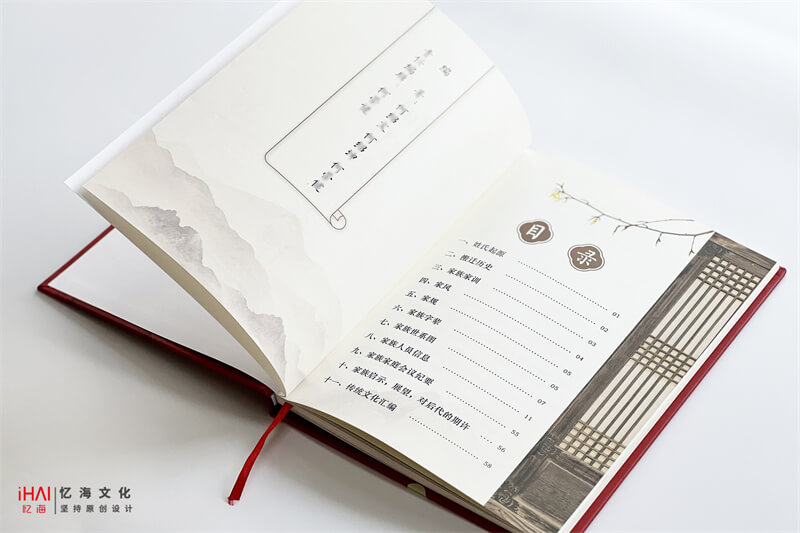 编
目录
一、姓氏起源 01
二、搬迁历史 02
三、家族家训 03
四、家风 04
五、家规 05
六、家族字辈 05
七、家族世系图 07
八、家族人员信息 11
九、家族家庭会议纪要 55
十、家族启示，展望，对后代的期许 56
十一、传统文化汇编 58
iHAI 忆海文化
忆海 坚持原创设计